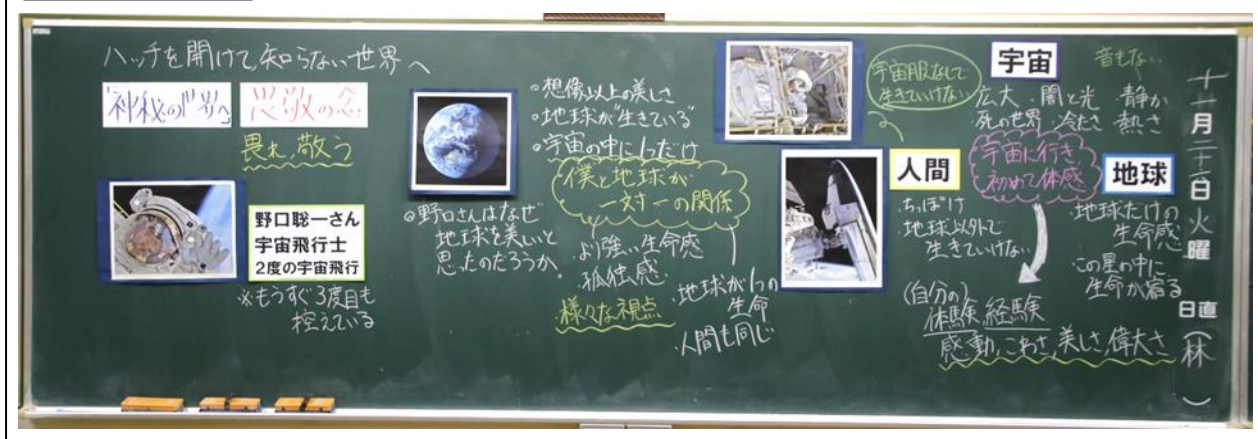 ハッチを開けて、知らない世界へ
「神秘の世界へ」
畏敬の念
畏れ、敬う
野口聡一さん
宇宙飛行士
2度の宇宙飛行
※もうすぐ3度目も
控えている
◎野口さんはなぜ
地球を美しいと
思ったのだろうか。
○想像以上の美しさ
○地球が“生きている”
○宇宙の中に1つだけ
僕と地球が
一対一の関係
より強い生命感
孤独感
様々な視点
・地球が1つの
生命
・人間も同じ
宇宙服なしで
生きていけない
宇宙
音もない
広大・闇と光・静か
・死の世界・冷たさ・熱さ
人間
宇宙に行き、
初めて体感
地球
・ちっぽけ
・地球以外で
生きていけない
・地球だけの
生命感
・この星の中に
生命が宿る
(自分の)
体験、経験
感動、こわさ、美しさ、偉大さ
十一月二十二日火曜
日直(林)